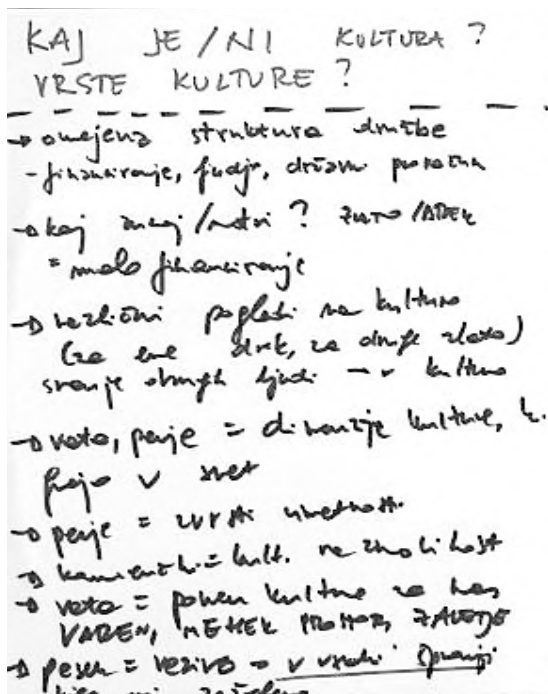 KAJ JE/NI KULTURA?
VRSTE KULTURE?
→ omejena struktura družbe
- financiranje, ljudje, državni proračun
→ kaj znotraj/ ? ZLATO/DREK
= malo financiranje
→ različni pogledi na kulturo
(za ene drek, za druge zlato)
sranje drugih ljudi → v kulturo
→ vata, perje = dimenzije kulture, k.
grejo v svet
→ perje = zvrsti umetnosti
→ kamenčki = kult. raznolikost
→ vata = pomen kulture za nas
VAREN, MEHEK PROSTOR, ZAVETJE
→ pesek = vezivo → v vsaki